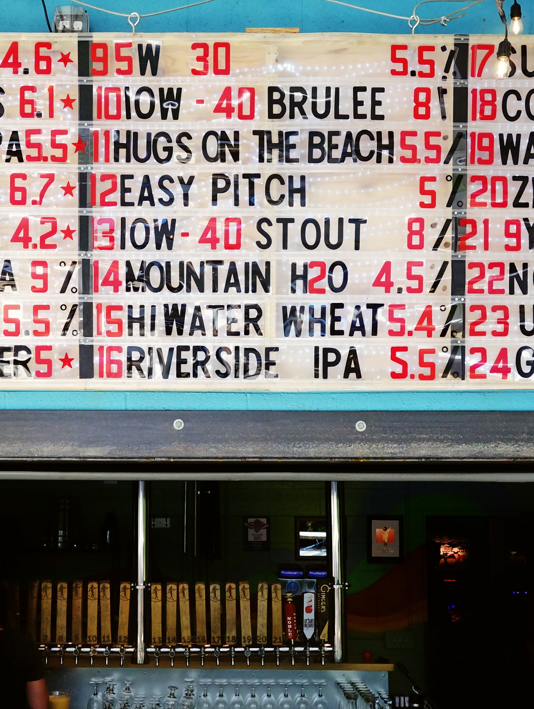 4.6 ★ 95W 30 5.5% 17 SU
S 6.1 ★ 10 IOW - 40 BRULEE 8% 18 CO
PA 5.5 ★ 11 HUGS ON THE BEACH 5.5% 19 WA
6.7 ★ 12 EASY PITCH 5% 20 ZI
4.2 ★ 13 IOW - 40 STOUT 8% 21 9Y
A 9% 14 MOUNTAIN H2O 4.5% 22 NO
5.5% 15 HI WATER WHEAT 5.4% 23 U
ERS 5 ★ 16 RIVERSIDE IPA 5.5% 24 G